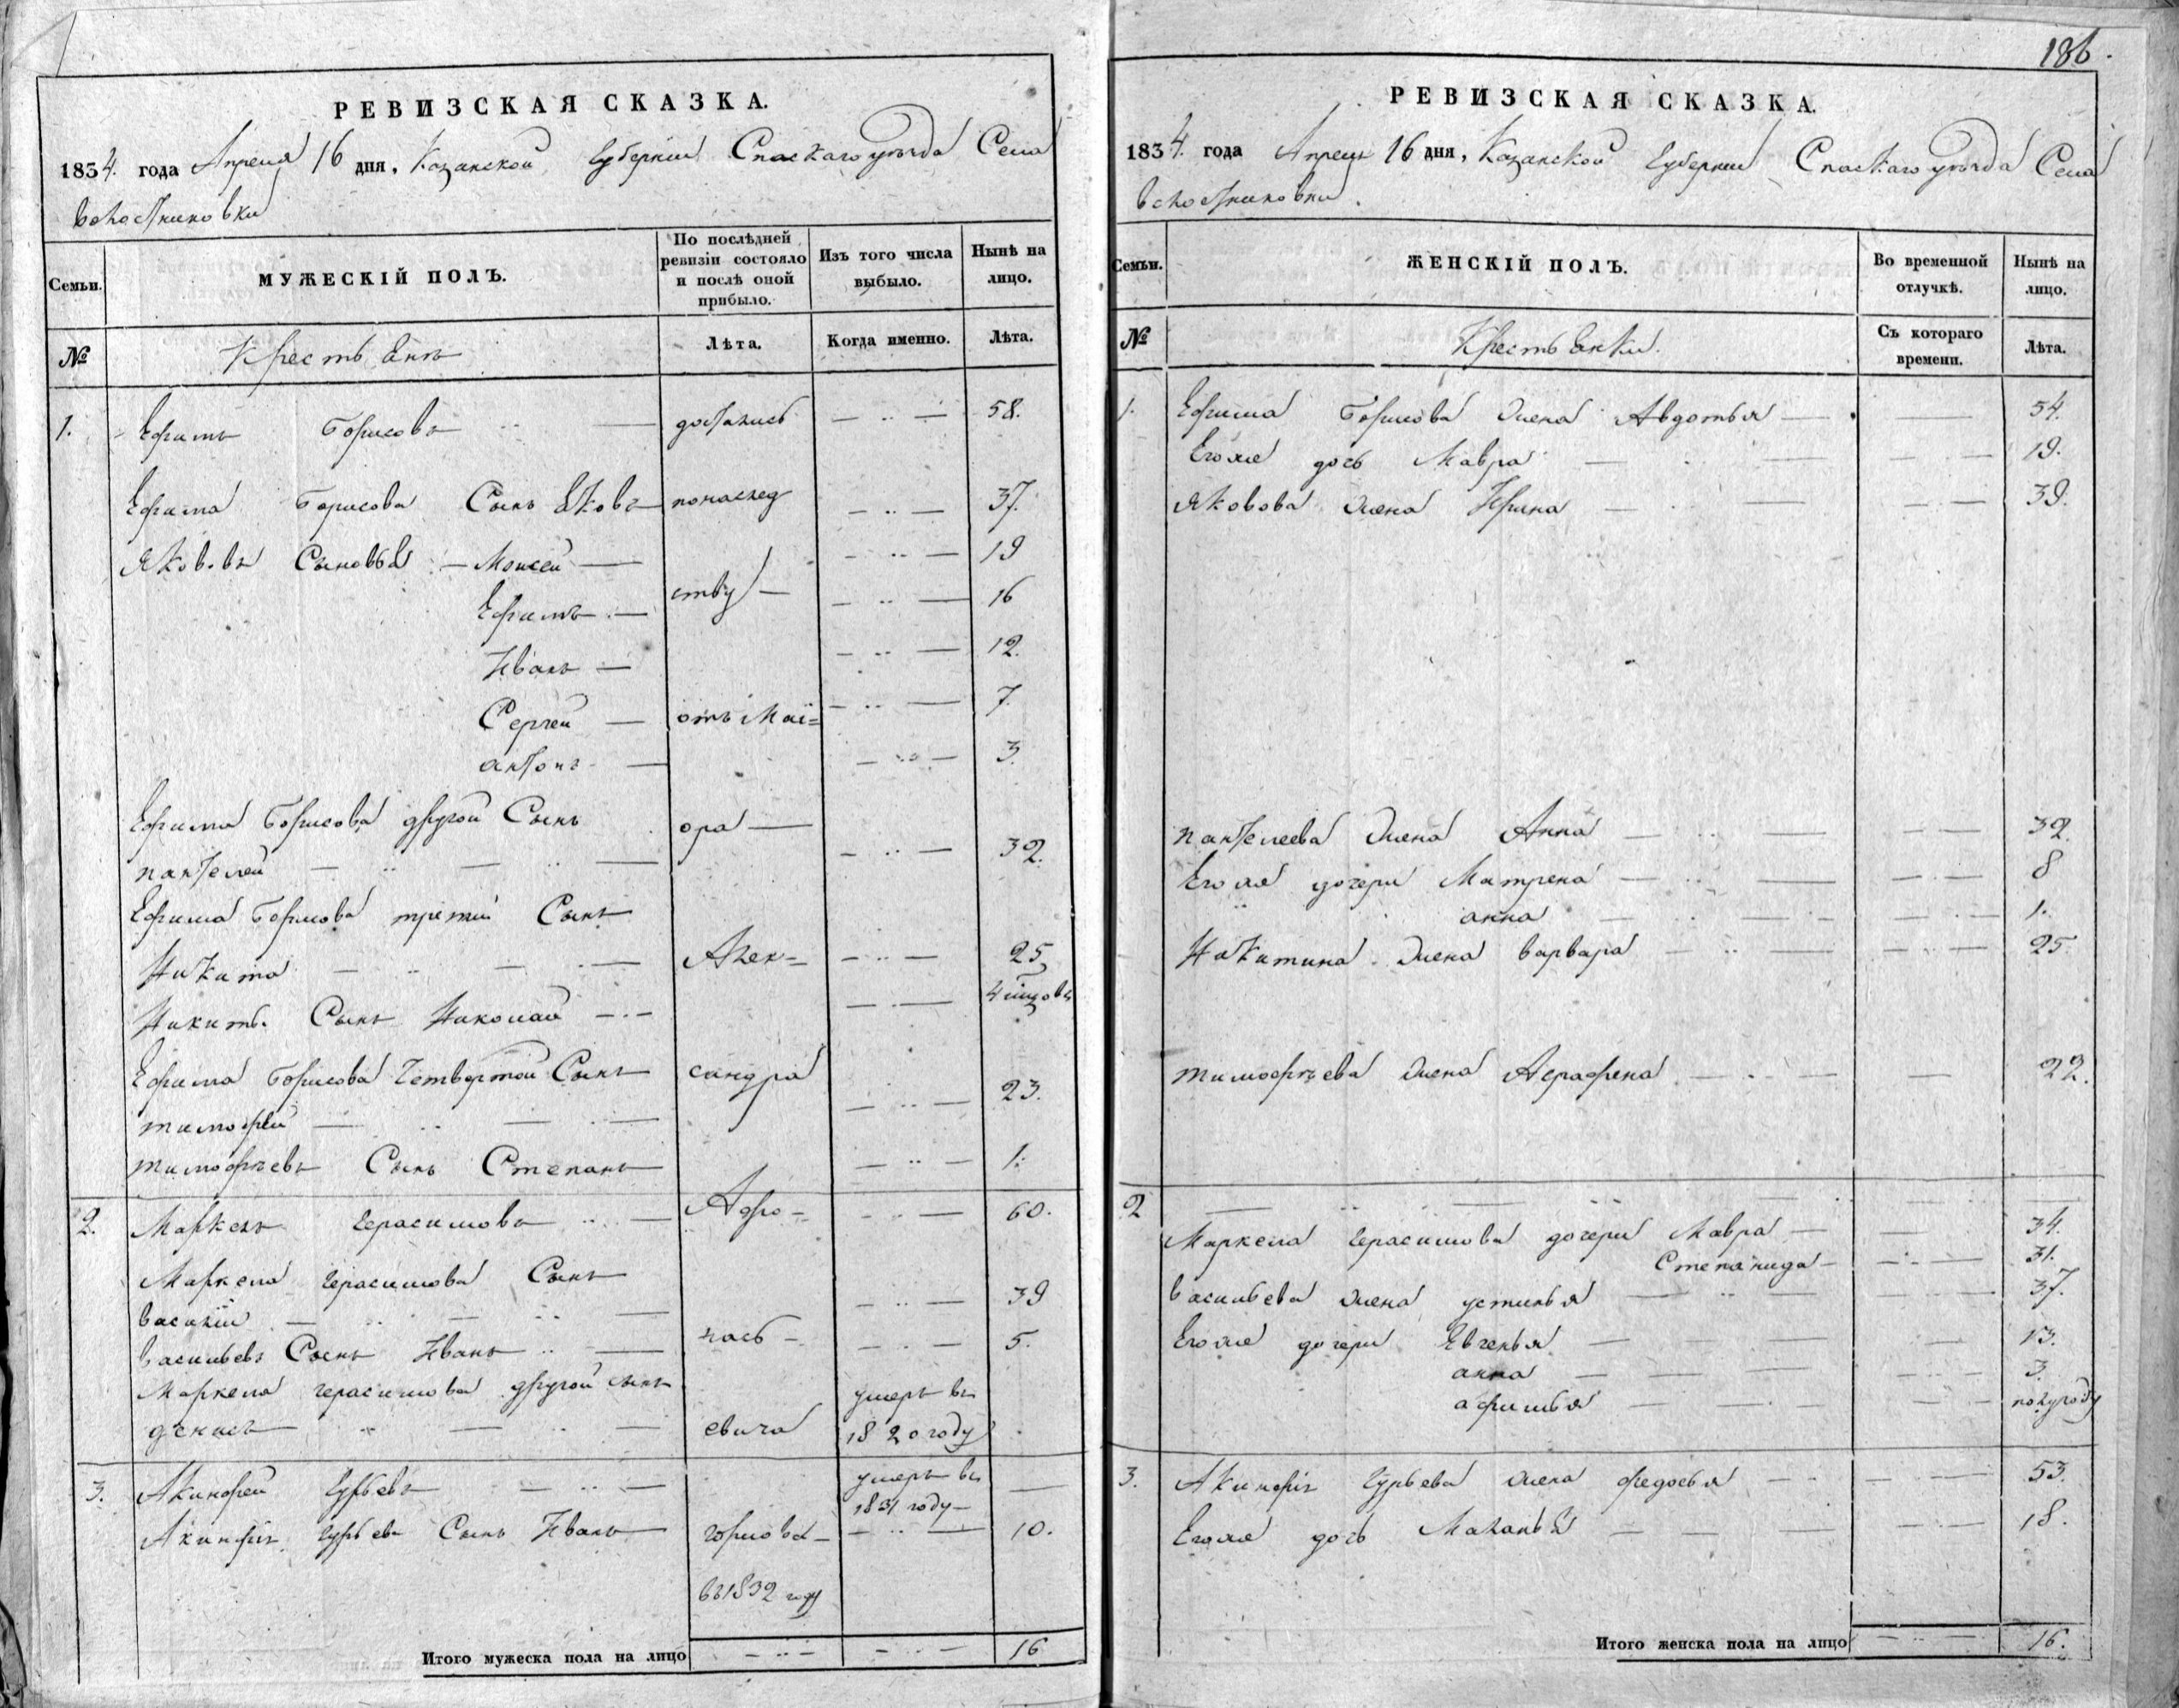 РЕВИЗСКАЯ СКАЗКА.
1834. года Апреля 16 дня, Казанской Губернии Спаскаго уѣзда Села
вскостниковки
Семьи.
МУЖЕСКІЙ ПОЛЪ.
По послѣдней ревизіи состояло и послѣ оной прибыло.
Изъ того числа выбыло.
Нынѣ на лицо.
№
Крестьянъ
Лѣта.
Когда именно.
Лѣта.
1. Ефимъ Борисовъ достались 58.
Ефима Борисова Сынъ Яковъ понаслед 37.
Яковвы Сыновья Моисей 19
Ефимъ ству 16
Иванъ 12.
Сергей отъ Маі= 7.
антонъ 3.
Ефима Борисова другой Сынъ ора
пантелей 32.
Ефима Борисова третий Сынъ
Никита Алек= 25
Никит. Сынъ Николай 4 мцовъ
Ефима Борисова Четвертой Сынъ сандра
тимофей 23.
тимофѣевъ Сынъ Степанъ 1.
2. Маркелъ Герасимовъ Афо= 60.
Маркела Герасимова Сынъ
василій 39
васильевъ Сынъ Иванъ насъ 5.
Маркела герасимова другой сынъ умеръ въ
денисъ евича 1820 году
3. Акинфей Гурьевъ умеръ въ
1831 году
Акинфія Гурьева Сынъ Иванъ 10.
въ 1832 году
Итого мужеска пола на лицо 16
186.
РЕВИЗСКАЯ СКАЗКА.
1834. года Апреля 16 дня, Казанской Губернии Спаскаго уѣзда Села
вскостниковки.
Семьи.
ЖЕНСКІЙ ПОЛЪ.
Во временной отлучкѣ.
Нынѣ на лицо.
№
Крестьянки.
Съ котораго времени.
Лѣта.
1. Ефима Борисова жена Авдотья 54.
Егоже дочь Мавра 19.
Яковова жена Ирина 39.
пантелеева жена Анна 32
Егоже дочери Матрена 8
анна 1.
Никитина жена варвара 25.
тимофѣева жена Аграфена 22.
2
Маркела Герасимова дочери Мавра 34.
Степанида 31.
васильева жена устинья 37.
Егоже дочери Евгенья 13.
анна 3.
афимья полугоду
3. Акинфія Гурьева жена федосья 53.
Егоже дочь Маланья 18.
Итого женска пола на лицо 16.